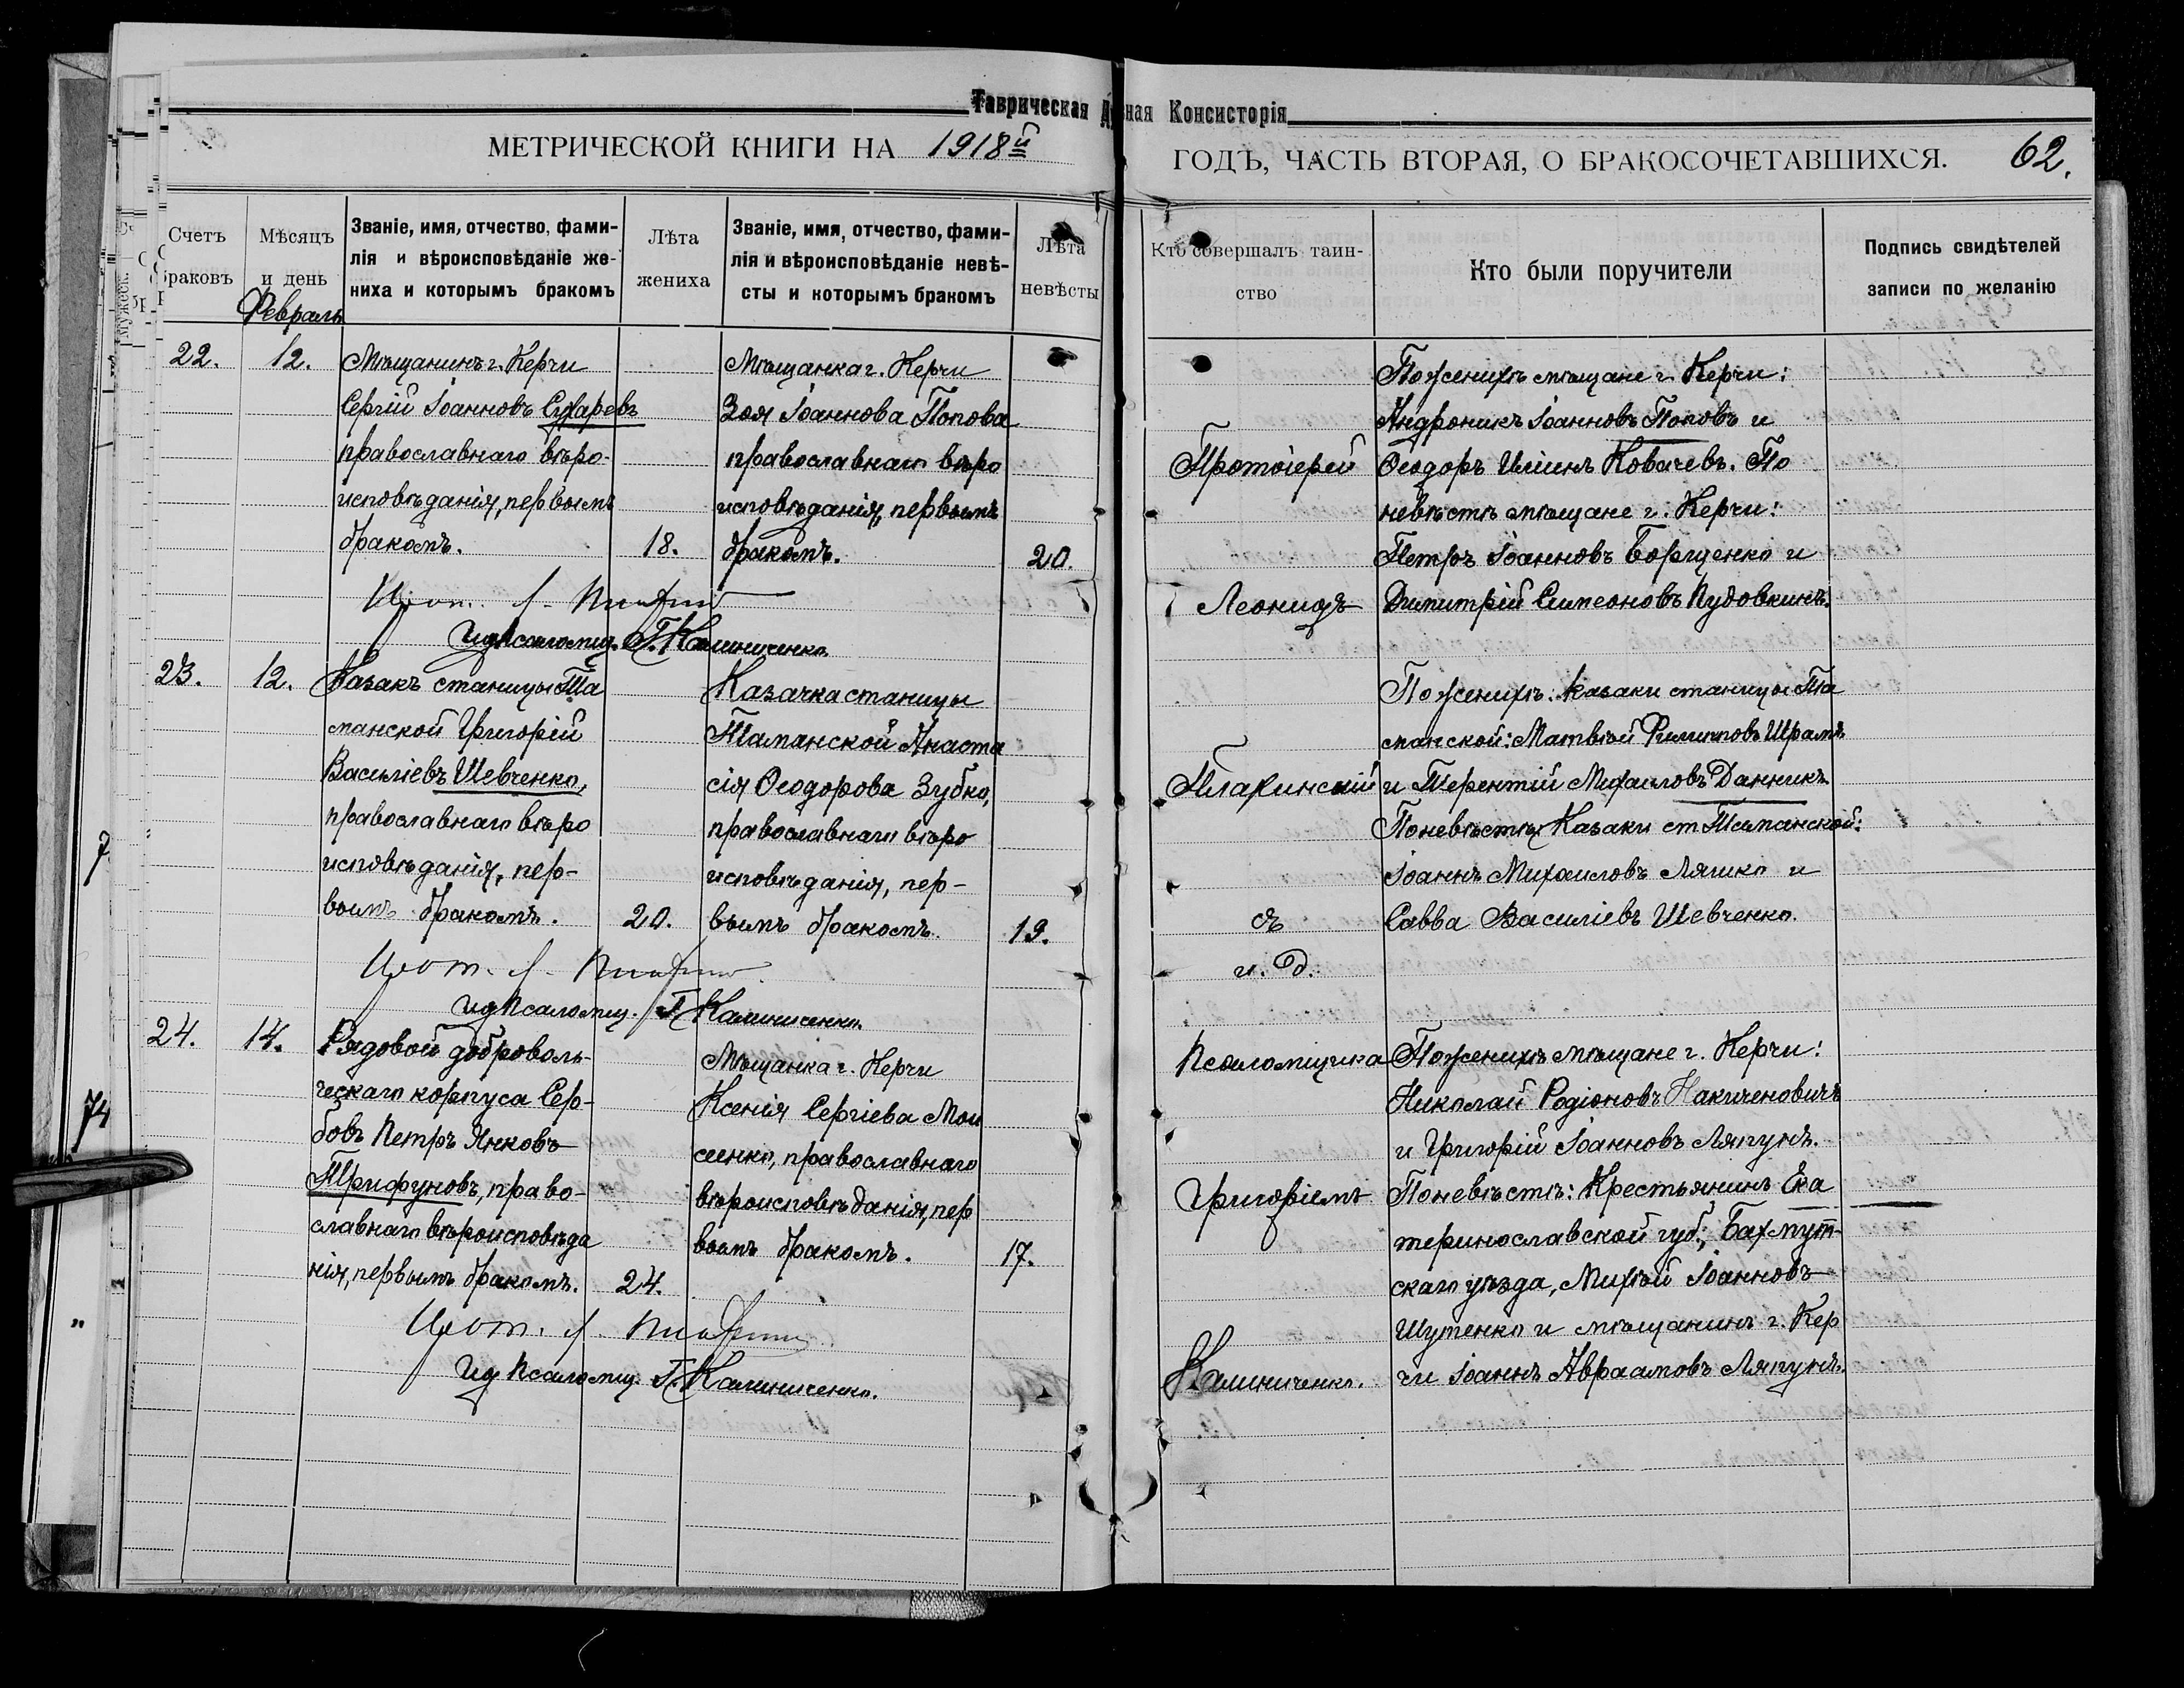 Таврическая Д ная Консисторія
МЕТРИЧЕСКОЙ КНИГИ НА 1918й
ГОДЪ, ЧАСТЬ ВТОРАЯ, О БРАКОСОЧЕТАВШИХСЯ. 62.
Счетъ
браковъ
Мѣсяцъ
и день
Февраль
Званіе, имя, отчество, фами-
лія и вѣроисповѣданіе же-
ниха и которымъ бракомъ
Лѣта
жениха
Званіе, имя, отчество, фами-
лія и вѣроисповѣданіе невѣ-
сты и которымъ бракомъ
Лѣта
невѣсты
Кто совершалъ таин-
ство
Кто были поручители
Подпись свидѣтелей
записи по желанію
22. 12.
Мѣщанинъ г. Керчи
Сергій Іоанновъ Сухаревъ
православнаго вѣро-
исповѣданія, первымъ
бракомъ. 18.
Мѣщанка г. Керчи
Зоя Іоаннова Попова
православнаго вѣро
исповѣданія, первымъ
бракомъ. 20.
Прот. Л.
Ид Псаломщ. Г. Калиниченко.
По женихѣ мѣщане г. Керчи:
Андроникъ Іоанновъ Поповъ и
Ѳеодоръ Иліинъ Ковачевъ. По
невѣстѣ мѣщане г. Керчи:
Петръ Іоанновъ Борщенко и
Димитрій Симеоновъ Пудовкинъ.
23. 12.
Казакъ станицы Та
манской Григорій
Василіевъ Шевченко,
православнаго вѣро
исповѣданія, пер-
вымъ бракомъ. 20.
Казачка станицы
Таманской Анаста
сія Ѳеодорова Зубко,
православнаго вѣро
исповѣданія, пер-
вымъ бракомъ. 19.
Прот. Л.
Ид Псаломщ. Г. Калиниченко.
По женихѣ: казаки станицы Та
манской: Матвѣй Филипповъ Шрамъ
и Терентій Михаиловъ Данникъ.
По невѣстѣ: Казаки ст Таманской:
Іоаннъ Михаиловъ Ляшко и
Савва Василіевъ Шевченко.
24. 14.
Рядовой доброволь-
ческаго корпуса Сер-
бовъ Петръ Янковъ
Трифуновъ, право-
славнаго вѣроисповѣда
нія, первымъ бракомъ. 24.
Мѣщанка г. Керчи
Ксенія Сергіева Мои
сеенко, православнаго
вѣроисповѣданія, пер
вымъ бракомъ. 17.
Прот. Л.
Ид Псаломщ. Г. Калиниченко.
Протоіерей
Леонидъ
съ
и. д.
Псаломщика
Григоріемъ
Калиниченко.
По женихѣ мѣщане г. Керчи:
Николай Родіоновъ Накиченовичъ
и Григорій Іоанновъ Ляпунъ.
По невѣстѣ: Крестьянинъ Ека
теринославской губ., Бахмут-
скаго уѣзда, Михѣй Іоанновъ
Шутенко и мѣщанинъ г. Кер
чи Іоаннъ Авраамовъ Ляпунъ.
7
74
"